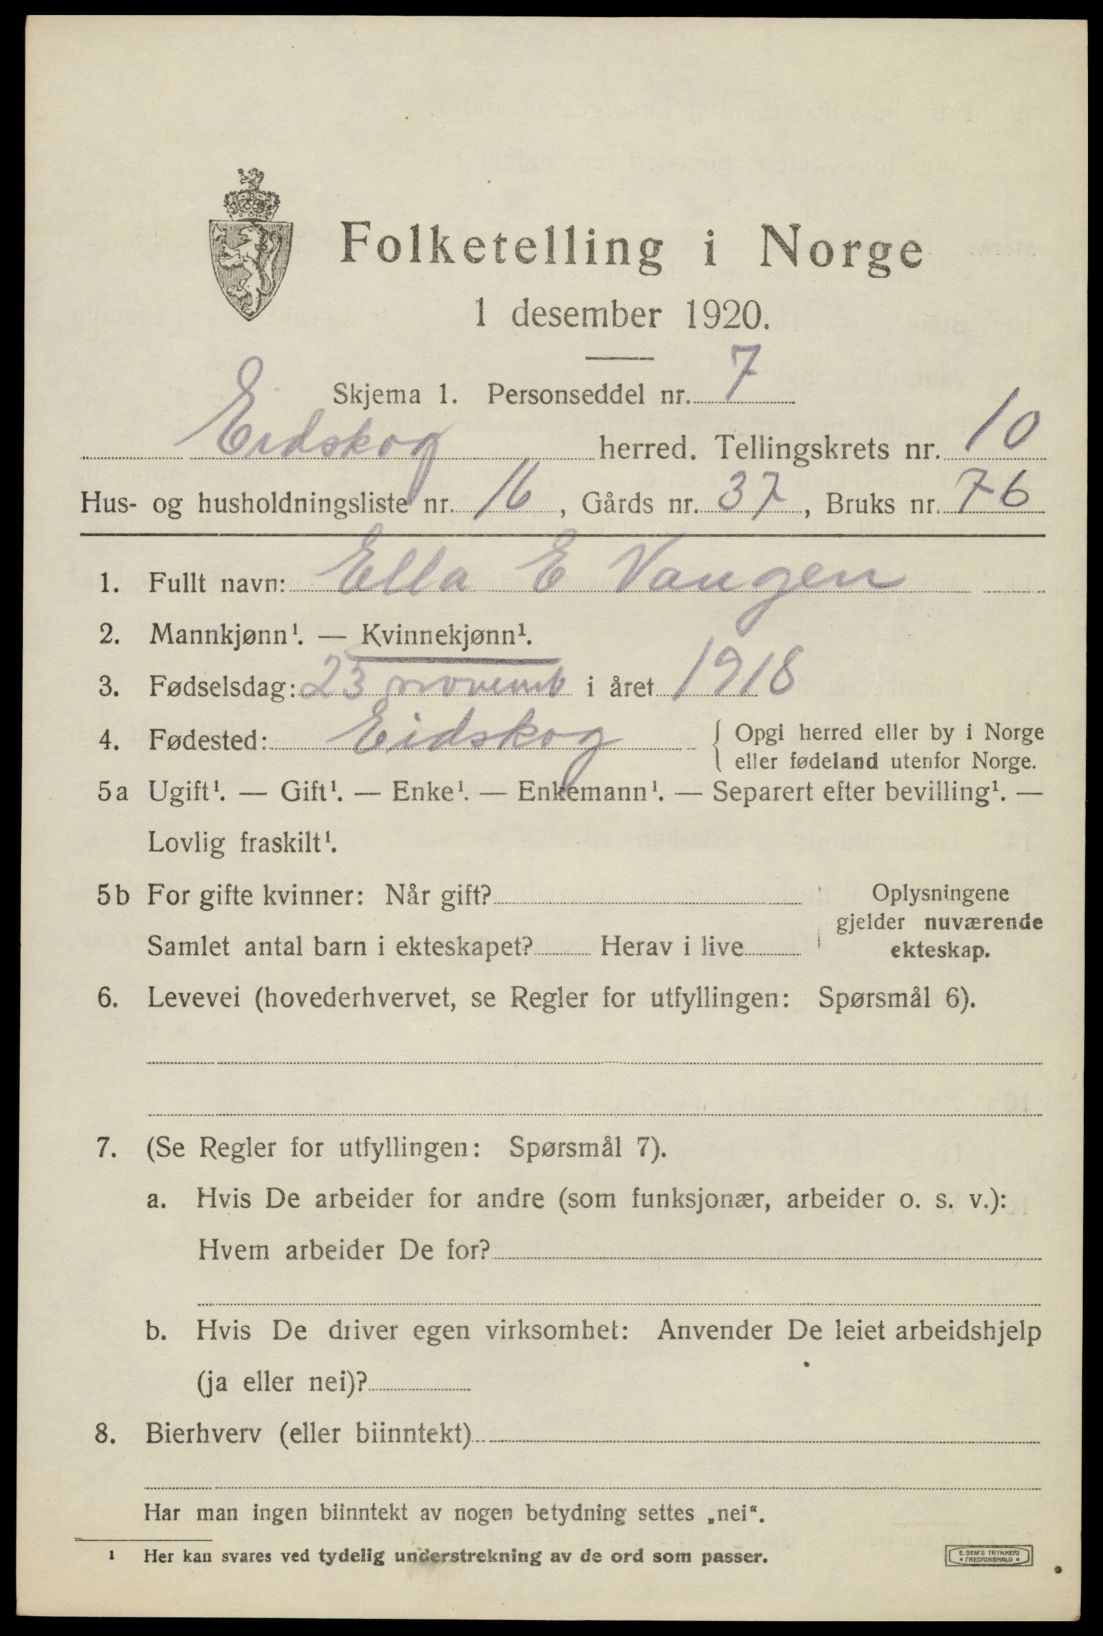 Folketelling i Norge
1 desember 1920.
Skjema 1. Personseddel nr. 7
Eidskog herred. Tellingskrets nr. 10
Hus- og husholdningsliste nr. 16, Gårds nr. 37, Bruks nr. 76
1. Fullt navn: Ella E Vangen
2. Mannkjønn¹. — Kvinnekjønn¹.
3. Fødselsdag: 23 novemb i året 1918
4. Fødested: Eidskog { Opgi herred eller by i Norge
eller fødeland utenfor Norge.
5a Ugift¹. — Gift¹. — Enke¹. — Enkemann¹. — Separert efter bevilling¹. —
Lovlig fraskilt¹.
5b For gifte kvinner: Når gift? Oplysningene
gjelder nuværende
Samlet antal barn i ekteskapet? Herav i live ekteskap.
6. Levevei (hovederhvervet, se Regler for utfyllingen: Spørsmål 6).
7. (Se Regler for utfyllingen: Spørsmål 7).
a. Hvis De arbeider for andre (som funksjonær, arbeider o. s. v.):
Hvem arbeider De for?
b. Hvis De driver egen virksomhet: Anvender De leiet arbeidshjelp
(ja eller nei)?
8. Bierhverv (eller biinntekt)
Har man ingen biinntekt av nogen betydning settes „nei“.
¹ Her kan svares ved tydelig understrekning av de ord som passer.
E. SEM'S TRYKKERI
• FREDRIKSHALD •